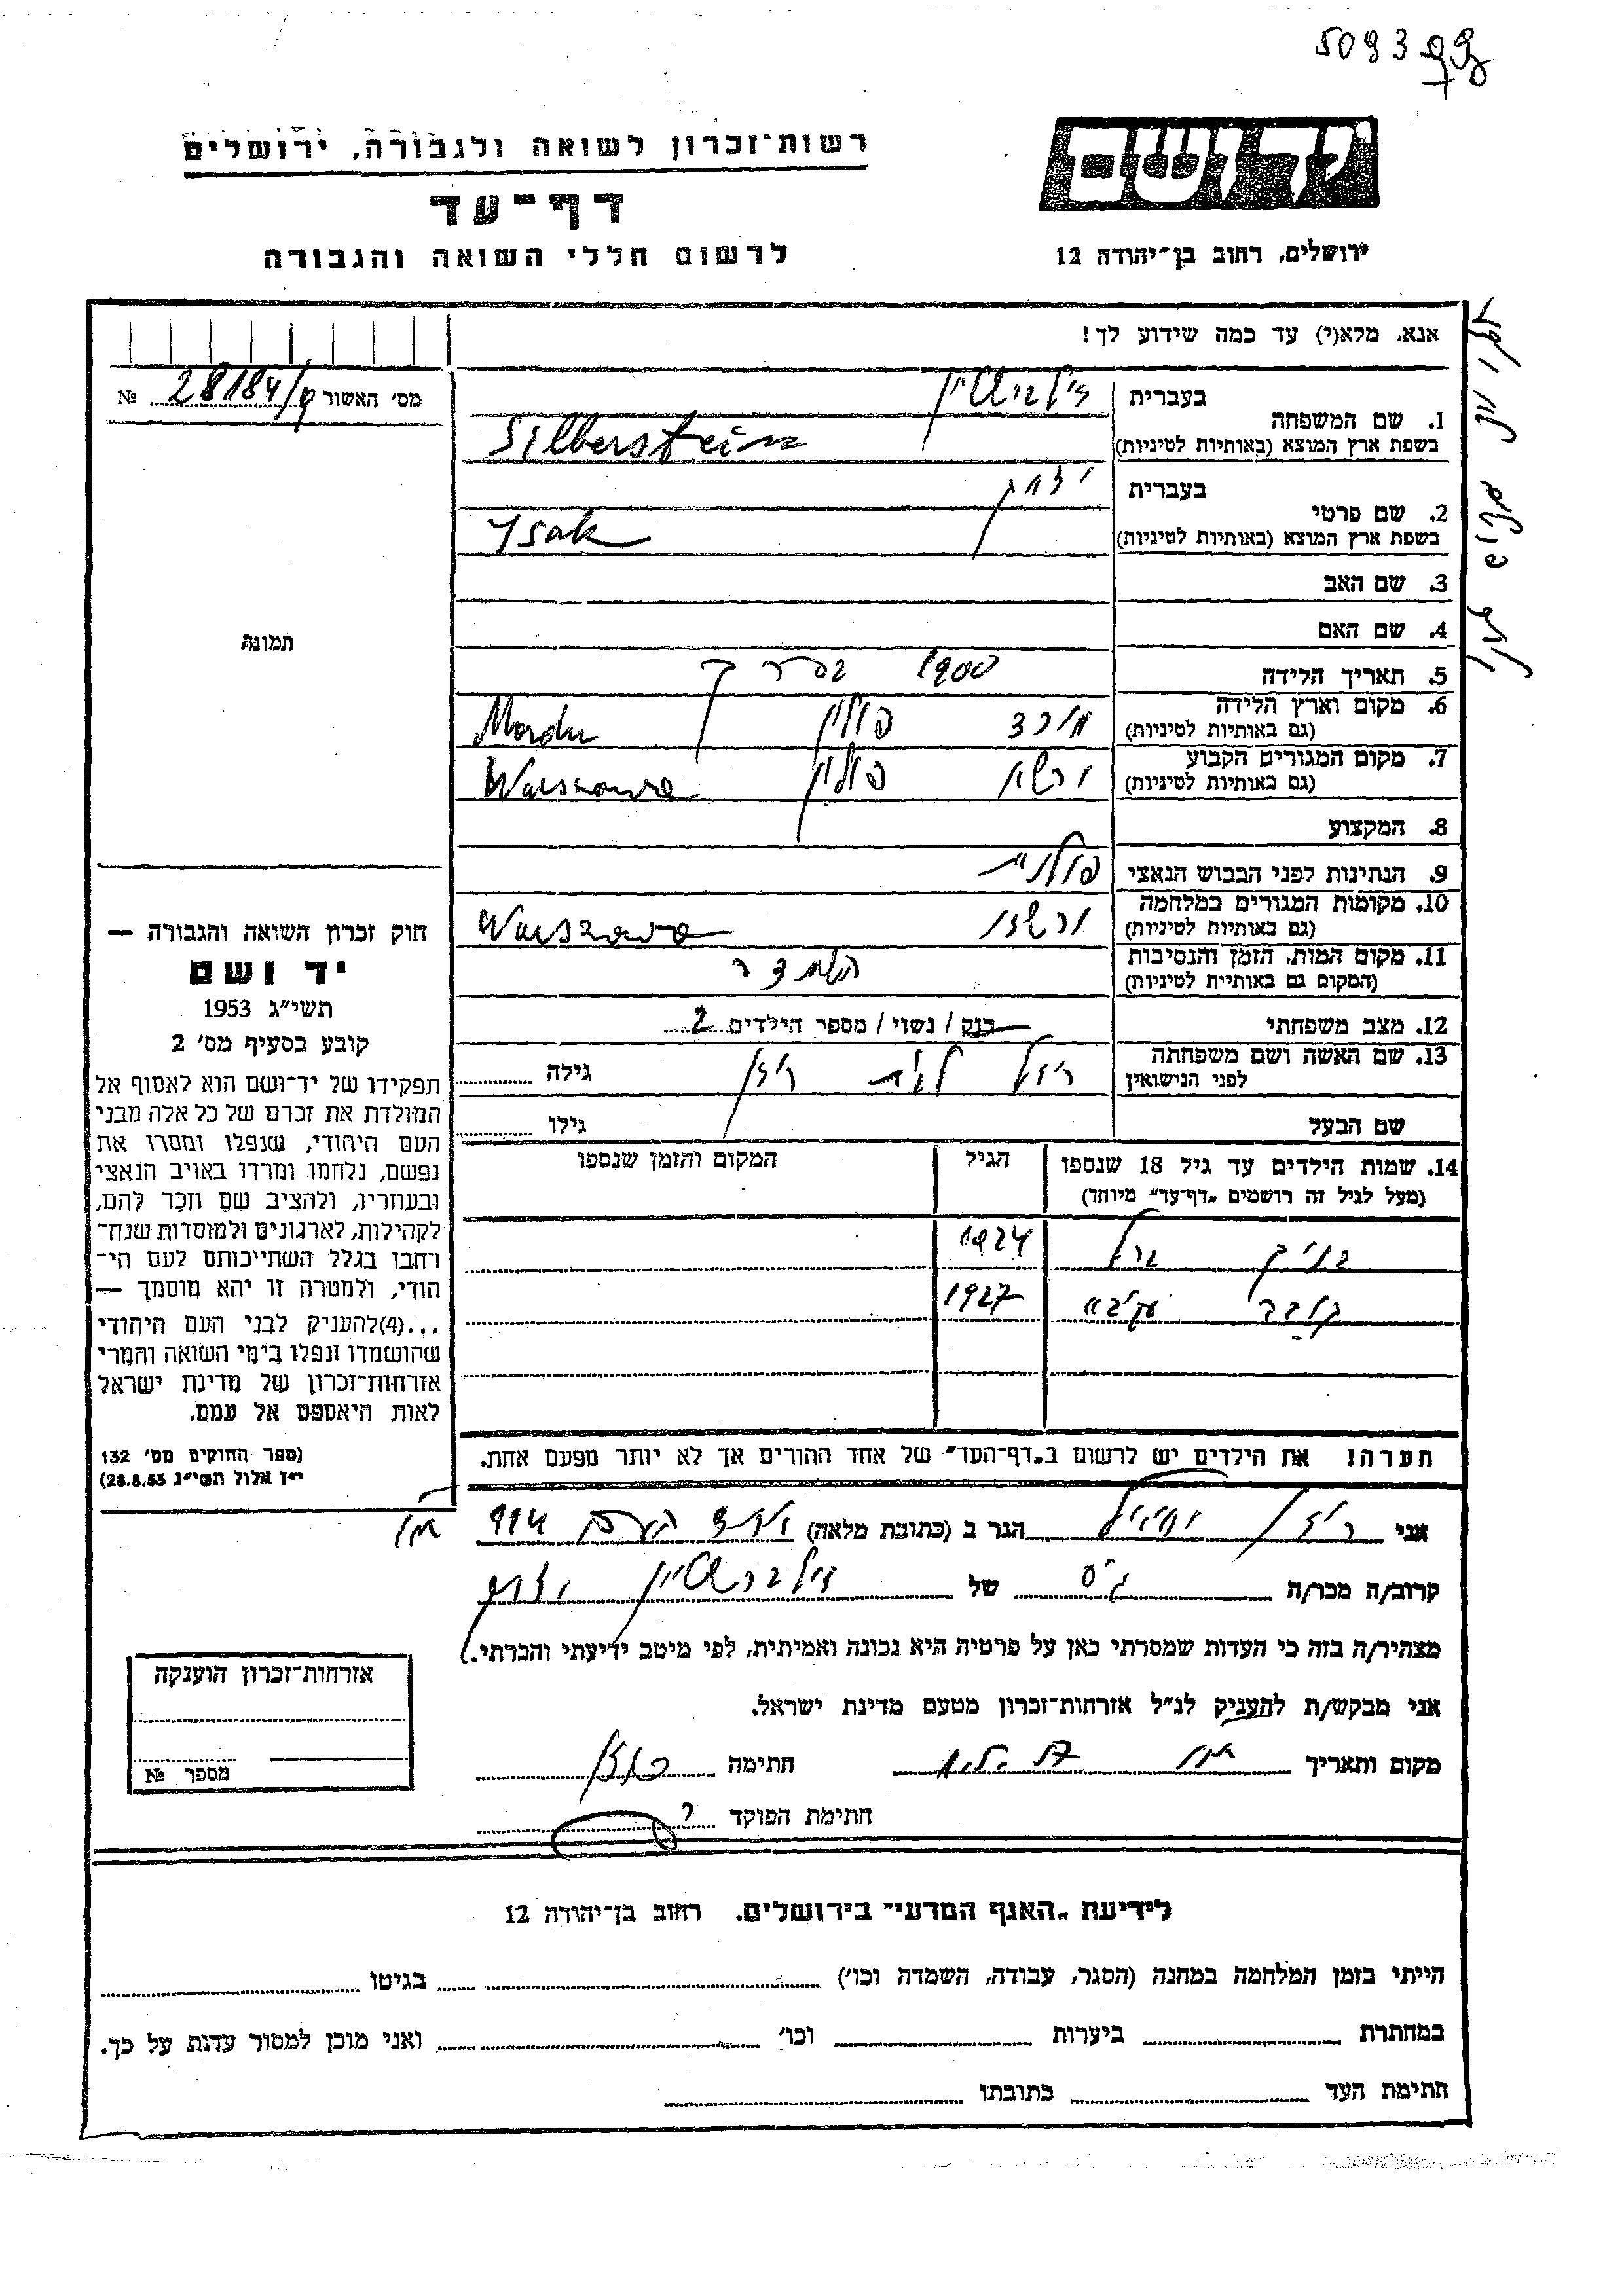 5093
רשות־זכרון לשואה ולגבורה, ירושלים
דף־עד
לרשום חללי השואה והגבורה
יד ושם
ירושלים, רחוב בן־יהודה 12
אנא, מלא(י) עד כמה שידוע לך!
מס׳ האשור 28184/ № 
1. שם המשפחה
בעברית זילברשטיין
בשפת ארץ המוצא (באותיות לטיניות) Silberstein
2. שם פרטי
בעברית יצחק
בשפת ארץ המוצא (באותיות לטיניות) Ysak
3. שם האב
4. שם האם
5. תאריך הלידה 1900 בערך
6. מקום וארץ הלידה
(גם באותיות לטיניות) פולין Mordu
7. מקום המגורים הקבוע
(גם באותיות לטיניות) ורשא פולין Warszawa
8. המקצוע
9. הנתינות לפני הכבוש הנאצי פולנית
10. מקומות המגורים במלחמה
(גם באותיות לטיניות) ורשא Warszawa
11. מקום המות, הזמן והנסיבות
(המקום גם באותיית לטיניות)
12. מצב משפחתי רוק / נשוי / מספר הילדים 2
13. שם האשה ושם משפחתה
לפני הנישואין רוזן גילה
שם הבעל גילו
14. שמות הילדים עד גיל 18 שנספו
(מעל לגיל זה רושמים „דף־עד״ מיוחד)
הגיל
המקום והזמן שנספו
1924
1927
הערה! את הילדים יש לרשום ב„דף־העד״ של אחד ההורים אך לא יותר מפעם אחת.
תמונה
חוק זכרון השואה והגבורה —
יד ושם
תשי״ג 1953
קובע בסעיף מס׳ 2
תפקידו של יד־ושם הוא לאסוף אל
המולדת את זכרם של כל אלה מבני
העם היהודי, שנפלו ומסרו את
נפשם, נלחמו ומרדו באויב הנאצי
ובעוזריו, ולהציב שם וזכר להם,
לקהילות, לארגונים ולמוסדות שנח־
רחבו בגלל השתייכותם לעם הי־
הודי, ולמטרה זו יהא מוסמך —
...(4)להעניק לבני העם היהודי
שהושמדו ונפלו בימי השואה והמרי
אזרחות־זכרון של מדינת ישראל
לאות היאספם אל עמם.
(ספר החוקים מס׳ 132
י״ז אלול תשי״ג 28.8.53)
אני רוזן הגר ב (כתובת מלאה)
קרוב/ה מכר/ה גיס של זילברשטיין יצחק
מצהיר/ה בזה כי העדות שמסרתי כאן על פרטיה היא נכונה ואמיתית, לפי מיטב ידיעתי והכרתי.
אני מבקש/ת להעניק לנ״ל אזרחות־זכרון מטעם מדינת ישראל.
מקום ותאריך חתימה
חתימת הפוקד
אזרחות־זכרון הוענקה
מספר №
לידיעת „האגף המדעי״ בירושלים, רחוב בן־יהודה 12
הייתי בזמן המלחמה במחנה (הסגר, עבודה, השמדה וכו׳) בגיטו
במחתרת ביערות וכו׳ ואני מוכן למסור עדות על כך.
חתימת העד כתובתו